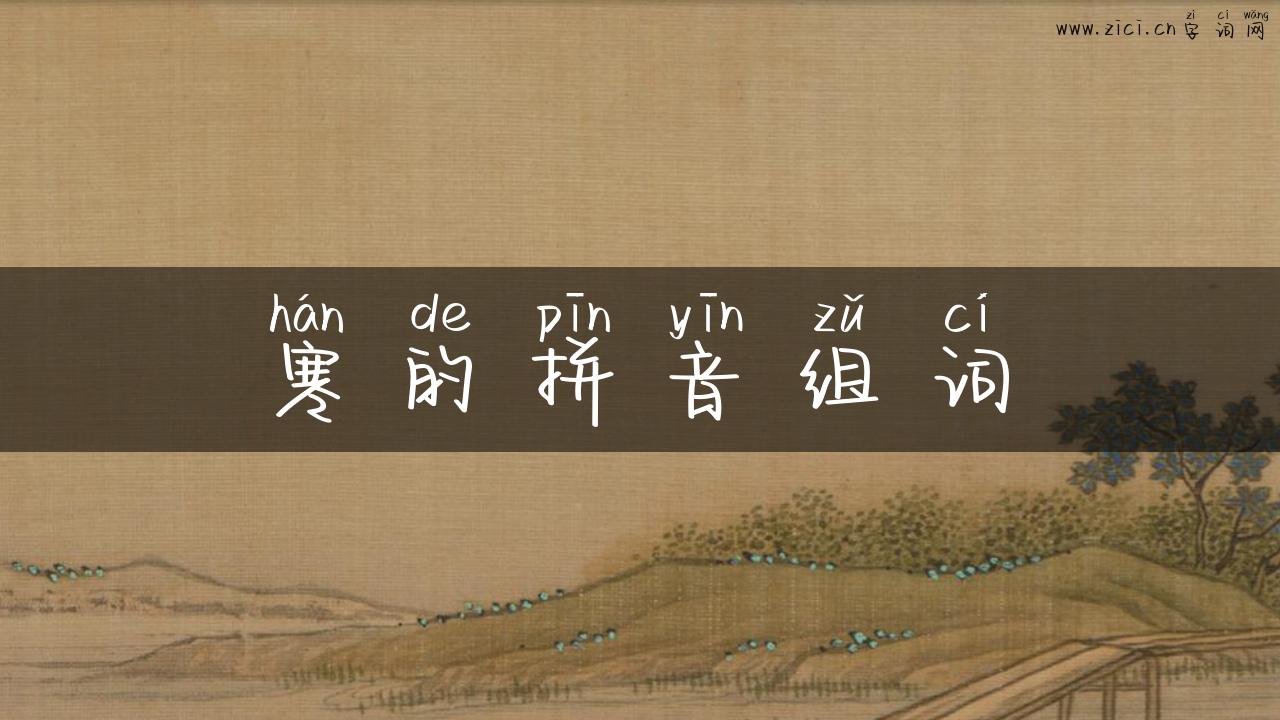 zì cí wǎng
www.zici.cn字词网
hán de pīn yīn zǔ cí
寒的拼音组词